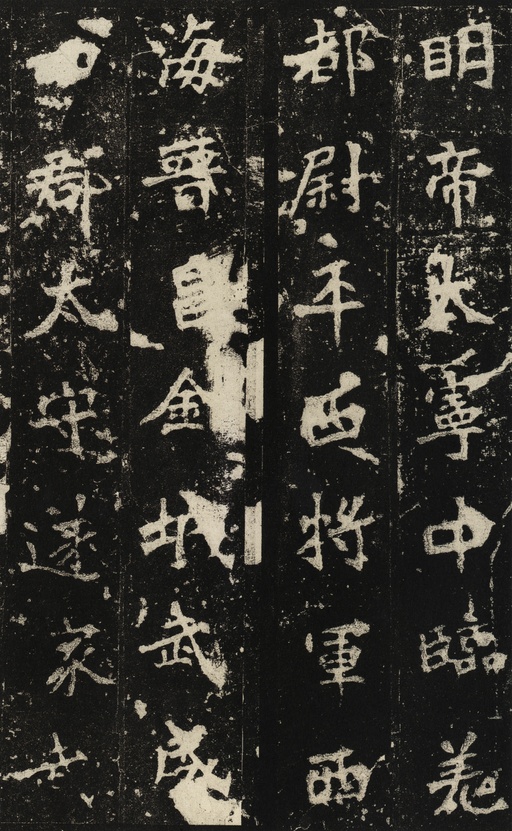 明帝大寧中臨羌
都尉平西將軍西
海晉昌金城武威
郡太守遂家